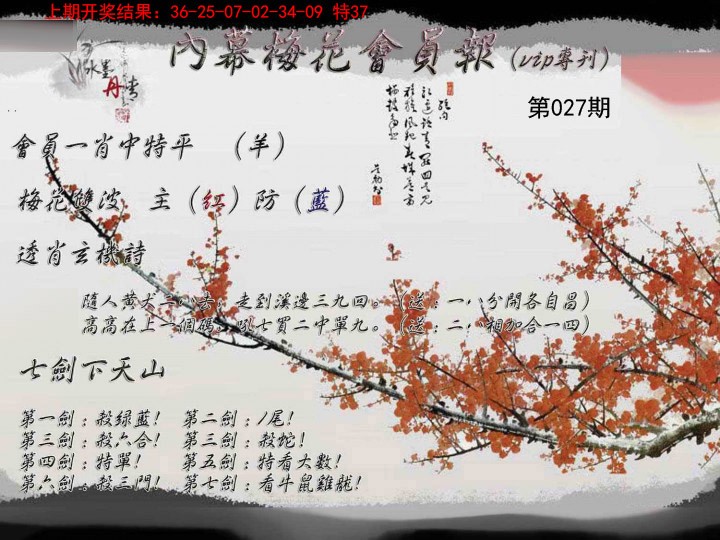 上期开奖结果：36-25-07-02-34-09 特37
內幕梅花會員報（vip專刊）
第027期
會員一肖中特平 （羊）
梅花雙波 主（紅）防（藍）
透肖玄機詩
隨人黃犬三 走到溪邊三九回。（送：一八分開各自昌）
高高在上一個碼 七買二中單九。（送：二 相加合一四）
七劍下天山
第一劍：殺綠藍！ 第二劍：1尾！
第三劍：殺六合！ 第三劍：殺蛇！
第四劍：特單！ 第五劍：特看大數！
第六劍：殺三門！ 第七劍：看牛鼠雞龍！